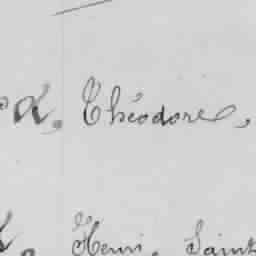 Théodore,
Henri, Saint